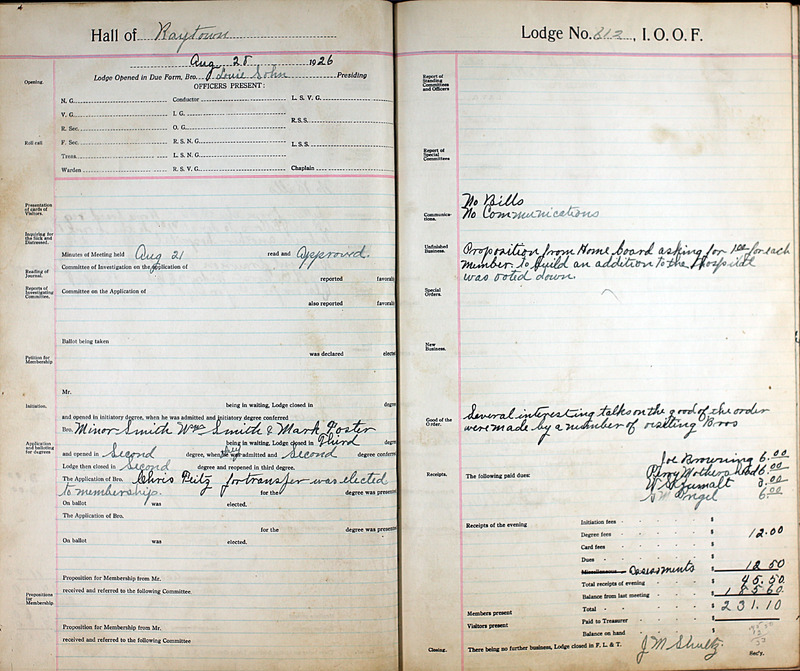 Hall of Raytown
Aug 28 1926
Lodge Opened in Due Form, Bro. Louie Sohn Presiding
OFFICERS PRESENT:
Opening.
N. G. Conductor L. S. V. G.
V. G. I. G. R.S.S.
R. Sec. O. G.
Roll call F. Sec. R. S. N. G. L.S.S.
Treas. L. S. N. G.
Warden R. S. V. G. Chaplain
Presentation of cards of Visitors.
Inquiring for the Sick and Distressed.
Minutes of Meeting held Aug 21 read and Approved.
Reading of Journal.
Committee of Investigation on the Application of
reported favorab
Reports of Investigating Committee.
Committee on the Application of
also reported favorab
Ballot being taken
was declared elect
Petition for Membership
Mr.
Initiation.
being in waiting, Lodge closed in degre
and opened in initiatory degree, when he was admitted and initiatory degree conferred
Bro. Minor Smith Wm Smith & Mark Foster
Application and balloting for degrees
being in waiting, Lodge closed in Third degree
and opened in Second degree, when they was admitted and Second degree confer
Lodge then closed in Second degree and reopened in third degree.
The Application of Bro. Chris Peitz for transfer was elected
to membership. for the degree was present
On ballot was elected.
The Application of Bro.
for the degree was presen
On ballot was elected.
Proposition for Membership from Mr.
received and referred to the following Committee.
Propositions for Membership.
Proposition for Membership from Mr.
received and referred to the following Committee
Lodge No. 612, I. O. O. F.
Report of Standing Committees and Officers
Report of Special Committees
No Bills
Communications. No Communications
Unfinished Business. Proposition from Home board asking for 1.00 for each
member. to build an addition to the Hospital
was voted down.
Special Orders.
New Business.
Good of the Order. Several interesting talks on the good of the order
were made by a number of visiting Bros
Joe Browning 6.00
Receipts. The following paid dues: Perry 6.00
6.00
Receipts of the evening Initiation fees $
Degree fees $ 12.00
Card fees $
Dues $
Miscellaneous Assessments $ 12 50
Total receipts of evening $ 45.50
Balance from last meeting $ 185.60
Members present Total $ 231.10
Visitors present Paid to Treasurer $
Balance on hand $
Closing. There being no further business, Lodge closed in F. L. & T. J M Shultz Rec'y.